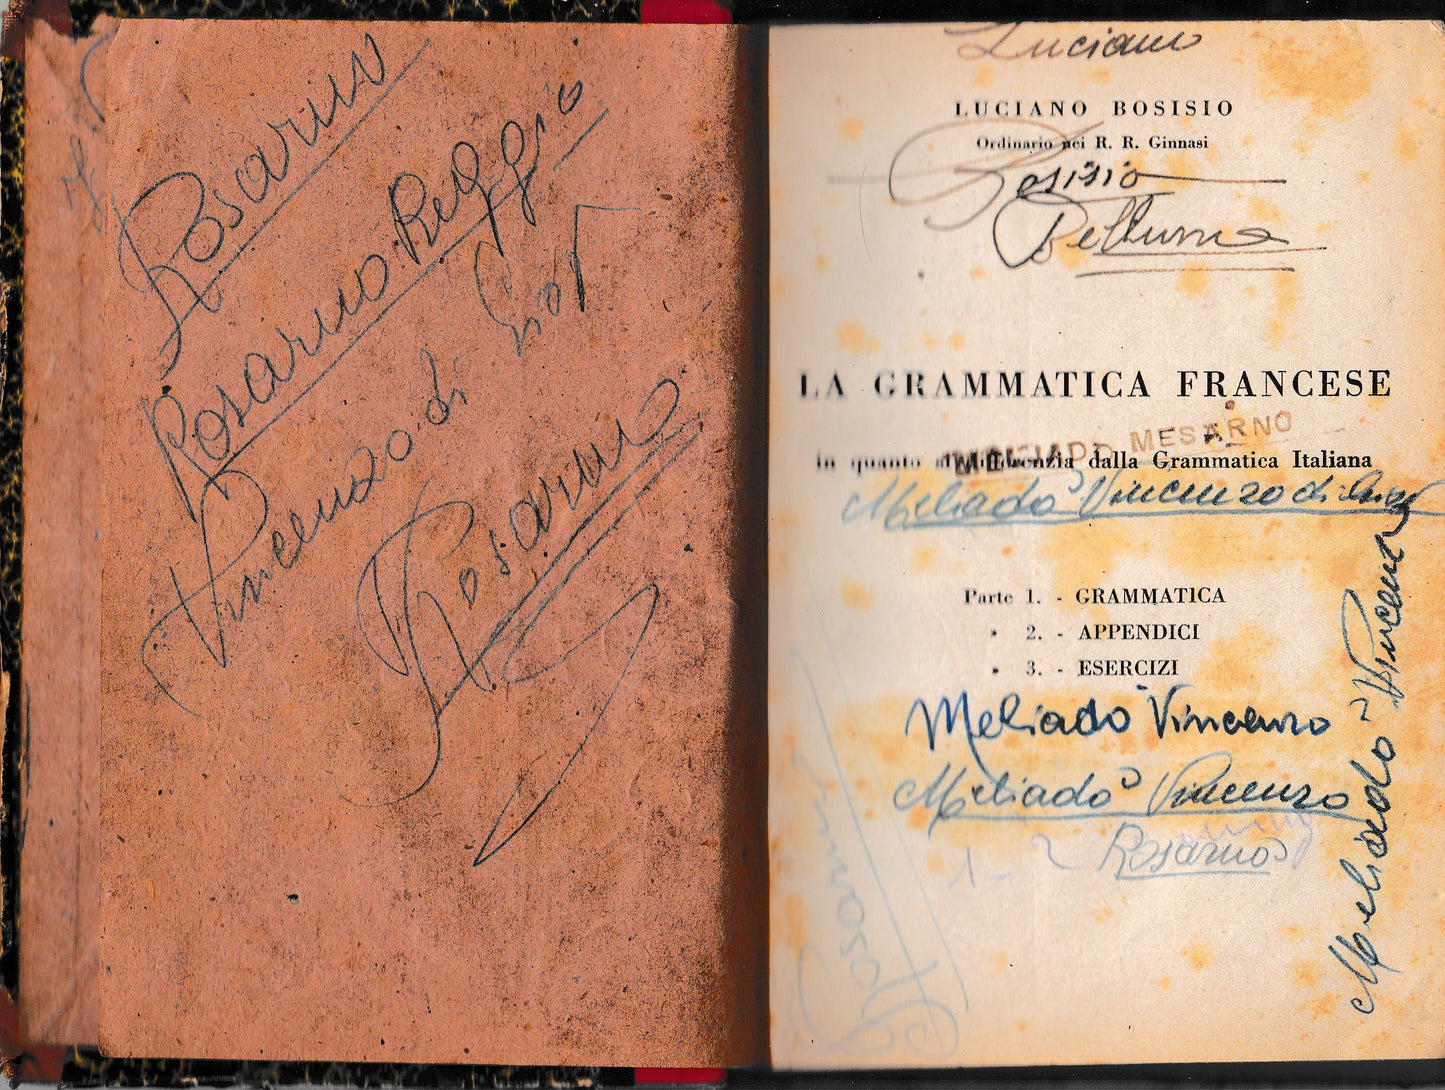 Rosarno
Rosarno Reggio
Vincenzo di
Rosarno
Luciano
LUCIANO BOSISIO
Ordinario nei R. R. Ginnasi
Bosisio
Belluno
LA GRAMMATICA FRANCESE
MESARNO
in quanto si differenzia dalla Grammatica Italiana
Meliadò Vincenzo di
Parte 1. - GRAMMATICA
» 2. - APPENDICI
» 3. - ESERCIZI
Meliadò Vincenzo
Meliadò Vincenzo
1 - 2 Rosarno
Meliadò Vincenzo
Rosarno